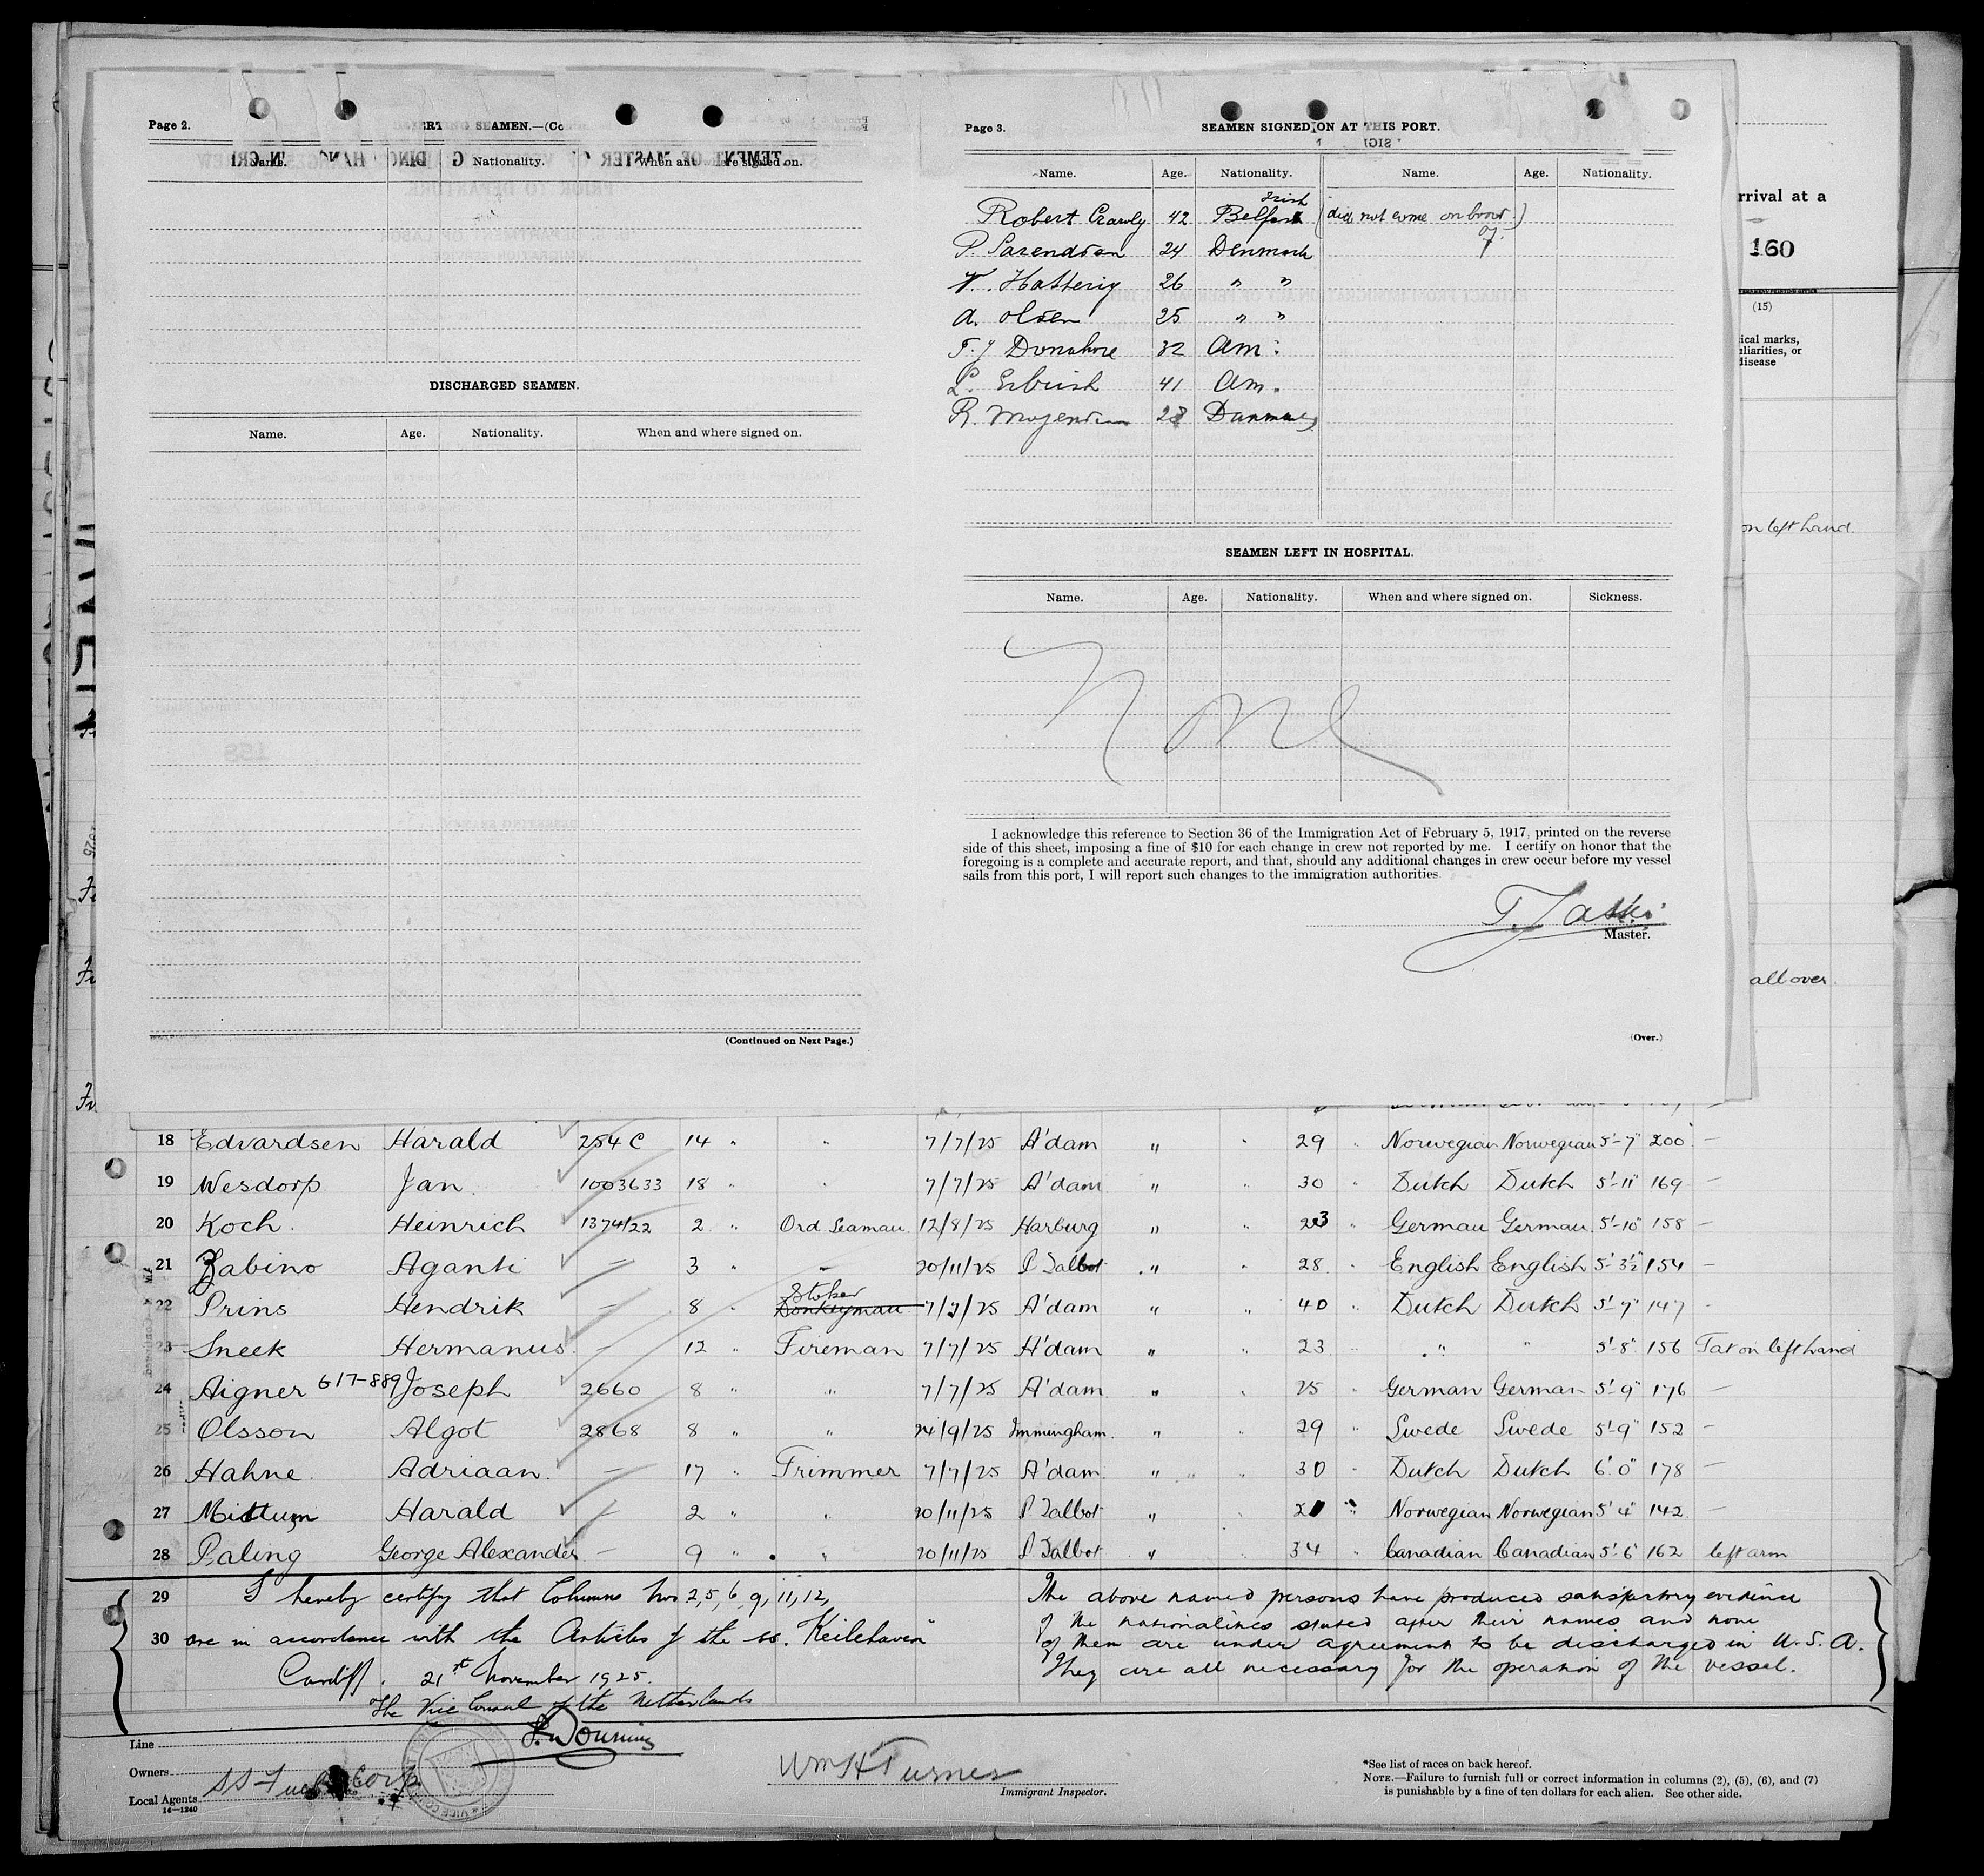 Page 2.
Name. Age. Nationality. When and where signed on.
DISCHARGED SEAMEN.
Name. Age. Nationality. When and where signed on.
(Continued on Next Page.)
Page 3.
SEAMEN SIGNED ON AT THIS PORT.
Name. Age. Nationality. Name. Age. Nationality.
Irish
Robert Crawly 42 Belfast (did not come on board.)
24 Denmark
26 " "
A. Olsen 25 " "
32 Am.
41 Am.
28
SEAMEN LEFT IN HOSPITAL.
Name. Age. Nationality. When and where signed on. Sickness.
None
I acknowledge this reference to Section 36 of the Immigration Act of February 5, 1917, printed on the reverse
side of this sheet, imposing a fine of $10 for each change in crew not reported by me. I certify on honor that the
foregoing is a complete and accurate report, and that, should any additional changes in crew occur before my vessel
sails from this port, I will report such changes to the immigration authorities.
Master.
(Over.)
rrival at a
160
(15)
ical marks,
uliarities, or
disease
on left hand.
all over.
18 Edvardsen Harald 254 C 14 " " 7/7/25 A'dam " " 29 " Norwegian Norwegian 5'-7" 200 —
19 Wesdorp Jan 1003633 18 " " 7/7/25 A'dam " " 30 " Dutch Dutch 5'-11" 169 —
20 Koch Heinrich 1374/22 2 " Ord Seaman. 12/8/25 Harburg " " 23 " German German 5'-10" 158 —
21 Zabino Aganti — 3 " " 20/11/25 P Talbot " " 28 " English English 5'-3½" 154 —
Stoker
22 Prins Hendrik — 8 " Donkeyman 7/7/25 A'dam " " 40 " Dutch Dutch 5'-7" 147 —
23 Sneek Hermanus — 12 " Fireman 7/7/25 A'dam " " 23 " " " 5'-8" 156 Tat on left hand
24 Aigner 617-889 Joseph 2660 8 " " 7/7/25 A'dam " " 25 " German German 5'-9" 176 —
25 Olsson Algot 2868 8 " " 24/9/25 Immingham. " " 29 " Swede Swede 5'-9" 152 —
26 Hahne Adriaan — 17 " Trimmer 7/7/25 A'dam " " 30 " Dutch Dutch 6'0" 178 —
27 Harald — 2 " " 20/11/25 P Talbot " " " Norwegian Norwegian 5'4" 142
28 Paling George Alexander — 9 " " 20/11/25 P Talbot " " 34 " Canadian Canadian 5'-6" 162 left arm
29 I hereby certify that Columns Nos 2, 5, 6, 9, 11, 12,
30 are in accordance with the Articles of the ss. "Keilehaven"
Cardiff, 21st November 1925.
The Vice Consul of the Netherlands
The above named persons have produced satisfactory evidence
of the nationalities stated after their names and none
of them are under agreement to be discharged in U.S.A.
They are all necessary for the operation of the vessel.
Line
Owners
Local Agents
14—1240
Wm H Turner
Immigrant Inspector.
*See list of races on back hereof.
NOTE.—Failure to furnish full or correct information in columns (2), (5), (6), and (7)
is punishable by a fine of ten dollars for each alien. See other side.